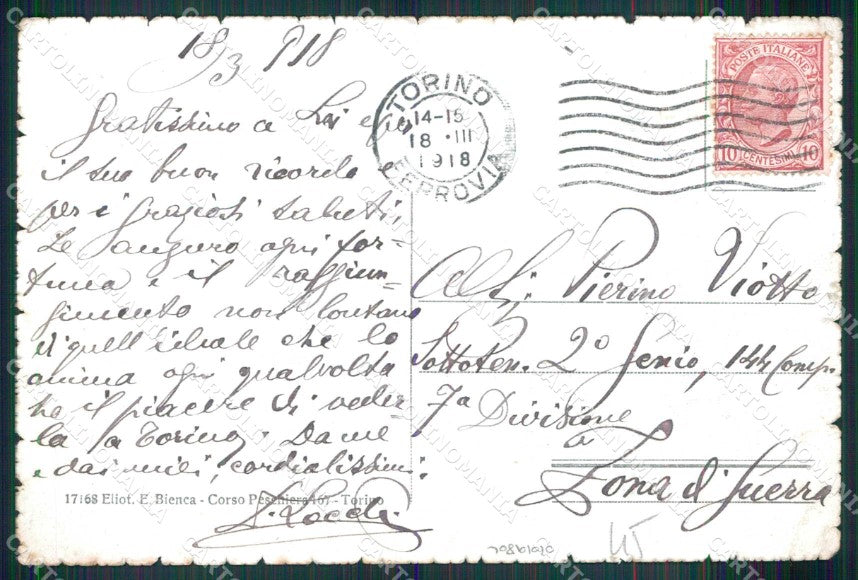 18/3 918
Gratissimo a Lei e
il suo buon ricordo e
per i graziosi saluti,
Le auguro ogni for-
tuna e il raggiun-
gimento non lontano
di quell'ideale che lo
anima ogni qualvolta
ho il piacere di veder-
la a Torino. Da me
e dai miei, cordialissimi.
17168 Eliot. E. Bienca - Corso Peschiera 167 - Torino
TORINO
14-15
18 · III
1918
FERROVIA
POSTE ITALIANE
10 CENTESIMI 10
Al Sig. Pierino Viotto
Sottoten. 2º Genio, 144 Comp.
7ª Divisione
a
Zona di Guerra
CARTOLINOMANIA